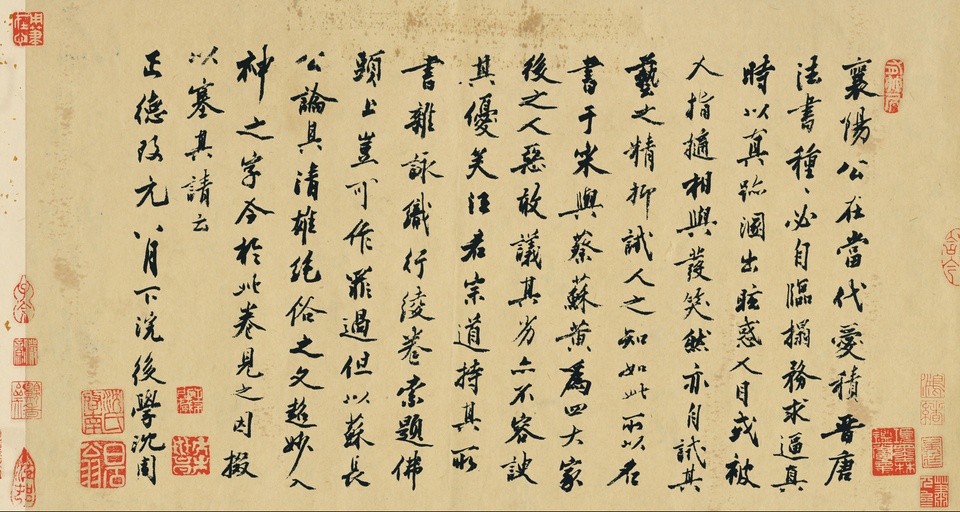 襄陽公在當代愛積晉唐
法書種、必自臨搨務求逼真
時以真跡溷出眩惑人目或被
人指擿相與發笑然亦自試其
藝之精抑試人之知如此所以名
書于宋與蔡蘇黃為四大家
後之人惡敢議其劣亦不容諛
其優矣汪君宗道持其所
書雜詠職行綾卷索題佛
頭上豈可作罪過但以蘇長
公論其清雄絕俗之文超妙入
神之字今於此卷見之因掇
以塞其請云
正德改元八月下浣後學沈周